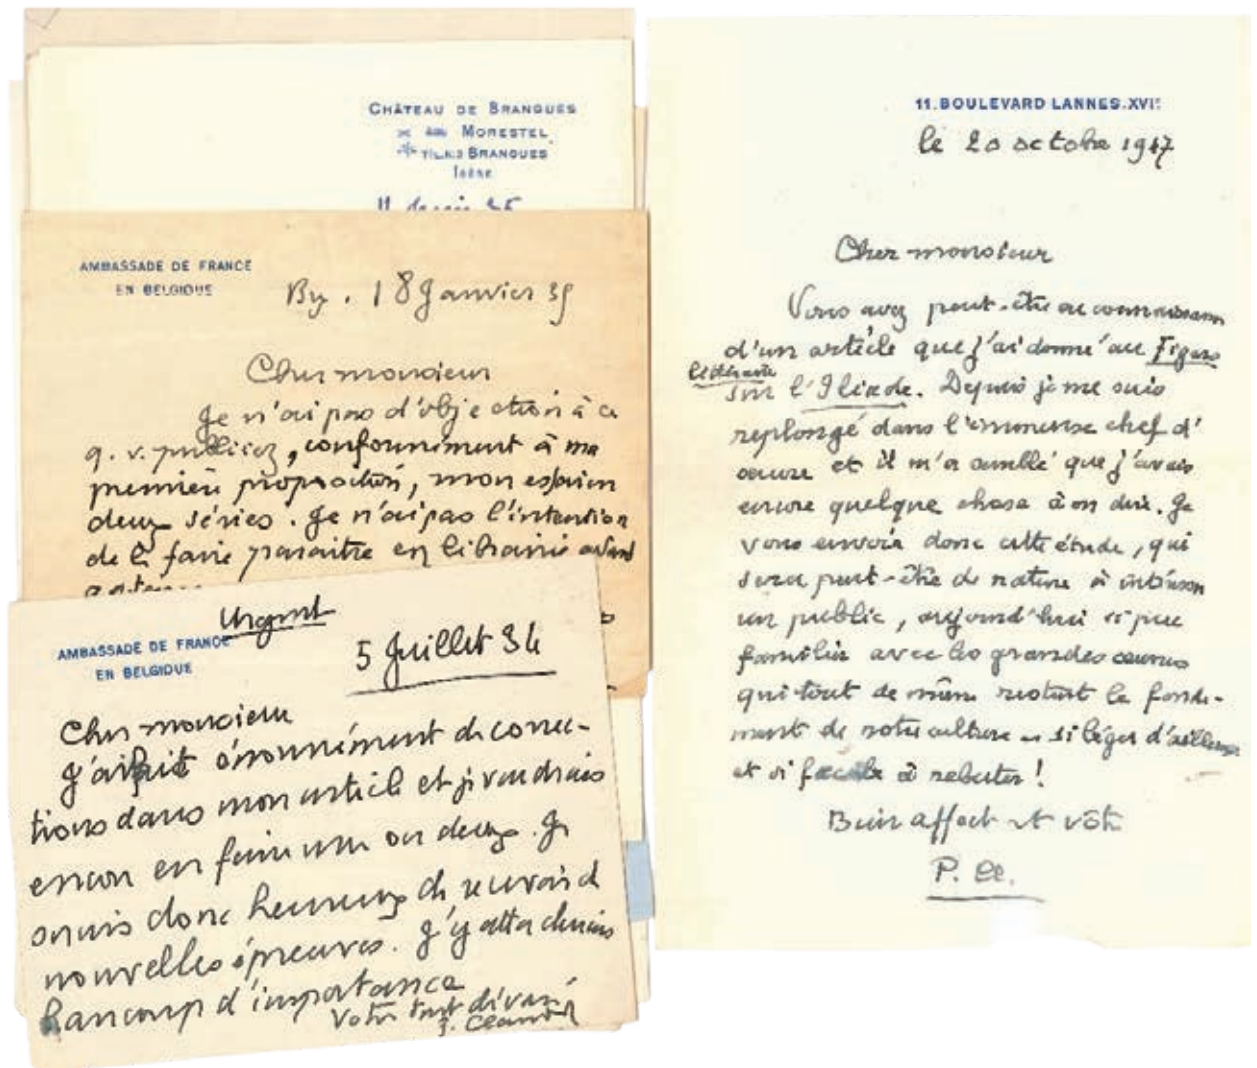 CHÂTEAU DE BRANGUES
MORESTEL
BRANGUES
Isère
AMBASSADE DE FRANCE
EN BELGIQUE
18 Janvier 35
Cher monsieur
Je n'ai pas d'objection à ce
q. v. publiez, conformément à ma
première proposition, mon essai en
deux séries. Je n'ai pas l'intention
de le faire paraître en librairie avant
Urgent
AMBASSADE DE FRANCE
EN BELGIQUE
5 Juillet 34
Cher monsieur
J'ai fait énormément de correc-
tions dans mon article et je voudrais
encore en faire une ou deux. Je
serais donc heureux de recevoir de
nouvelles épreuves. J'y attacherais
beaucoup d'importance
Votre tout dévoué
P. Claudel
11.BOULEVARD LANNES.XVIe
le 20 octobre 1947
Cher monsieur
Vous avez peut-être eu connaissance
d'un article que j'ai donné au Figaro
littéraire
sur l'Iliade. Depuis je me suis
replongé dans l'immense chef d'
œuvre et il m'a semblé que j'avais
encore quelque chose à en dire. Je
vous envoie donc cette étude, qui
sera peut-être de nature à intéresser
un public, aujourd'hui si peu
familier avec les grandes œuvres
qui tout de même restent le fonde-
ment de notre culture si léger d'ailleurs
et si facile à rebuter !
Bien affect et vôtre
P. Cl.